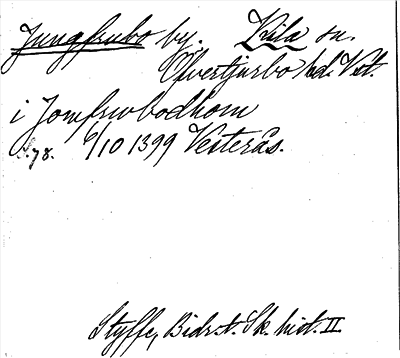 Jungfrubo by. Kila sn.
Öfvertjurbo hd. Vstm.
i Jomfrwbodhom
S. 78. 6/10 1399 Vesterås.
Styffe, Bidr. t. Sk. hist. II